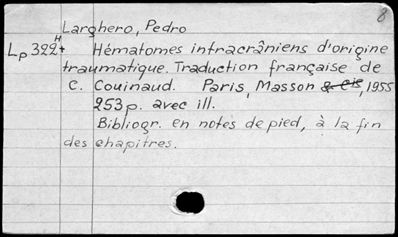 8
Larghero, Pedro
Lp322H+ Hématomes intracrâniens d'origine
traumatique. Traduction française de
C. Couinaud. Paris, Masson & Cie, 1955
253p. avec ill.
Bibliogr. en notes de pied, à la fin
des chapitres.